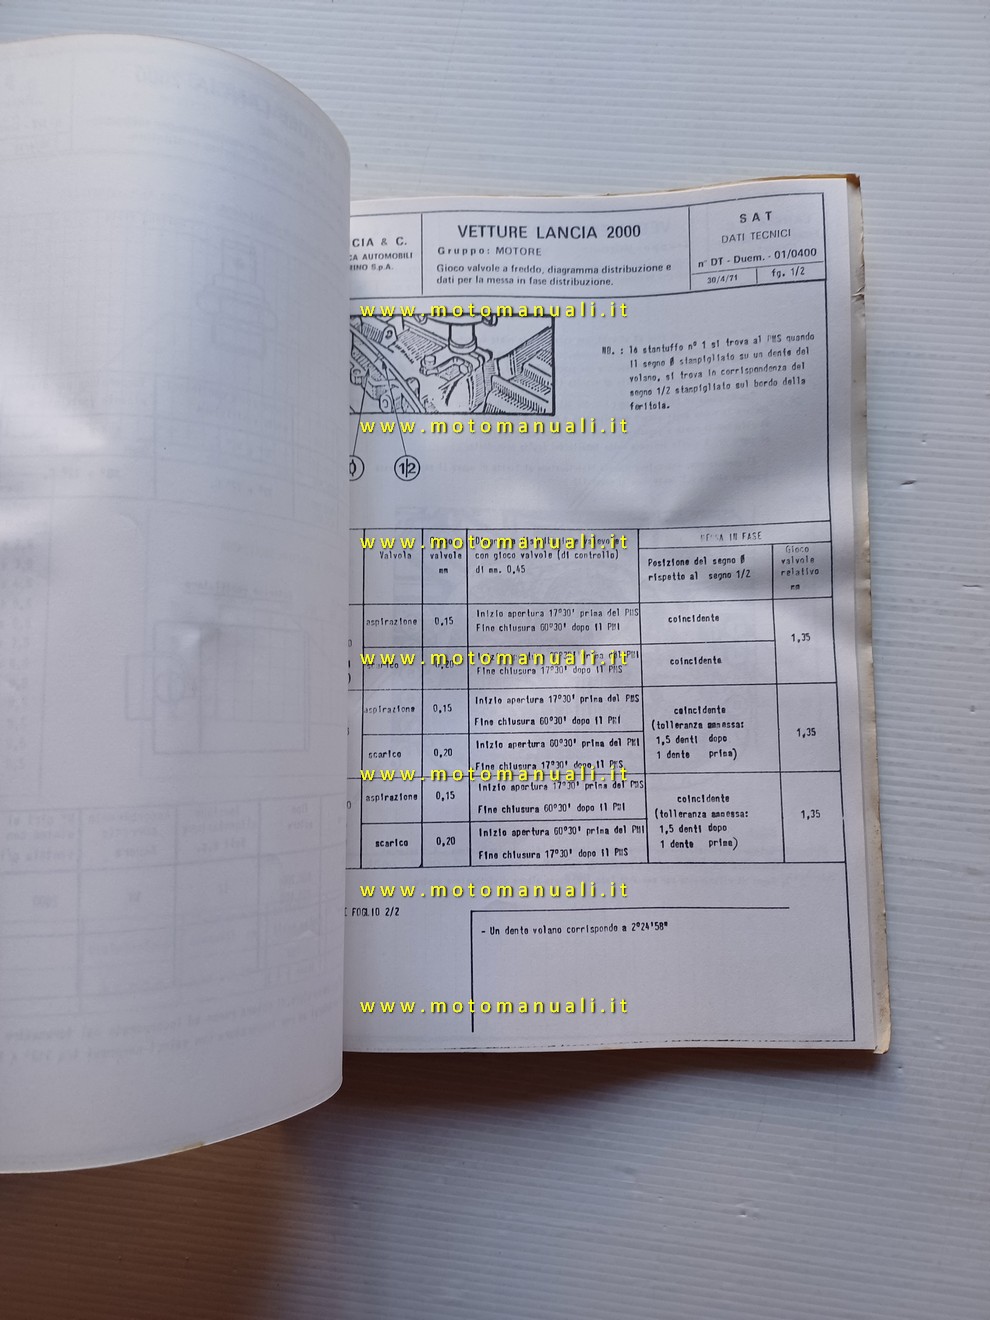 CIA & C.
CA AUTOMOBILI
RINO S.p.A.
VETTURE LANCIA 2000
Gruppo: MOTORE
Gioco valvole a freddo, diagramma distribuzione e
dati per la messa in fase distribuzione.
S A T
DATI TECNICI
n° DT - Duem. - 01/0400
30/4/71
fg. 1/2
www.motomanuali.it
NB. : lo stantuffo n° 1 si trova al PMS quando
il segno Ø stampigliato su un dente del
volano, si trova in corrispondenza del
segno 1/2 stampigliato sul bordo della
feritoia.
www.motomanuali.it
1/2
www.motomanuali.it
Valvola
valvole
mm
con gioco valvole (di controllo)
di mm. 0,45
MESSA IN FASE
Posizione del segno Ø
rispetto al segno 1/2
Gioco
valvola
relativo
mm
aspirazione
0,15
Inizio apertura 17°30' prima del PMS
Fine chiusura 60°30' dopo il PMI
coincidente
1,35
www.motomanuali.it
0,20
Fine chiusura 17°30' dopo il PMS
coincidente
aspirazione
0,15
Inizio apertura 17°30' prima del PMS
Fine chiusura 60°30' dopo il PMI
coincidente
(tolleranza ammessa:
1,5 denti dopo
1 dente prima)
1,35
scarico
0,20
Inizio apertura 60°30' prima del PMI
Fine chiusura 17°30' dopo il PMS
www.motomanuali.it
aspirazione
0,15
Inizio apertura 17°30' prima del PMS
Fine chiusura 60°30' dopo il PMI
coincidente
(tolleranza ammessa:
1,5 denti dopo
1 dente prima)
1,35
scarico
0,20
Inizio apertura 60°30' prima del PMI
Fine chiusura 17°30' dopo il PMS
www.motomanuali.it
FOGLIO 2/2
- Un dente volano corrisponde a 2°24'58"
www.motomanuali.it